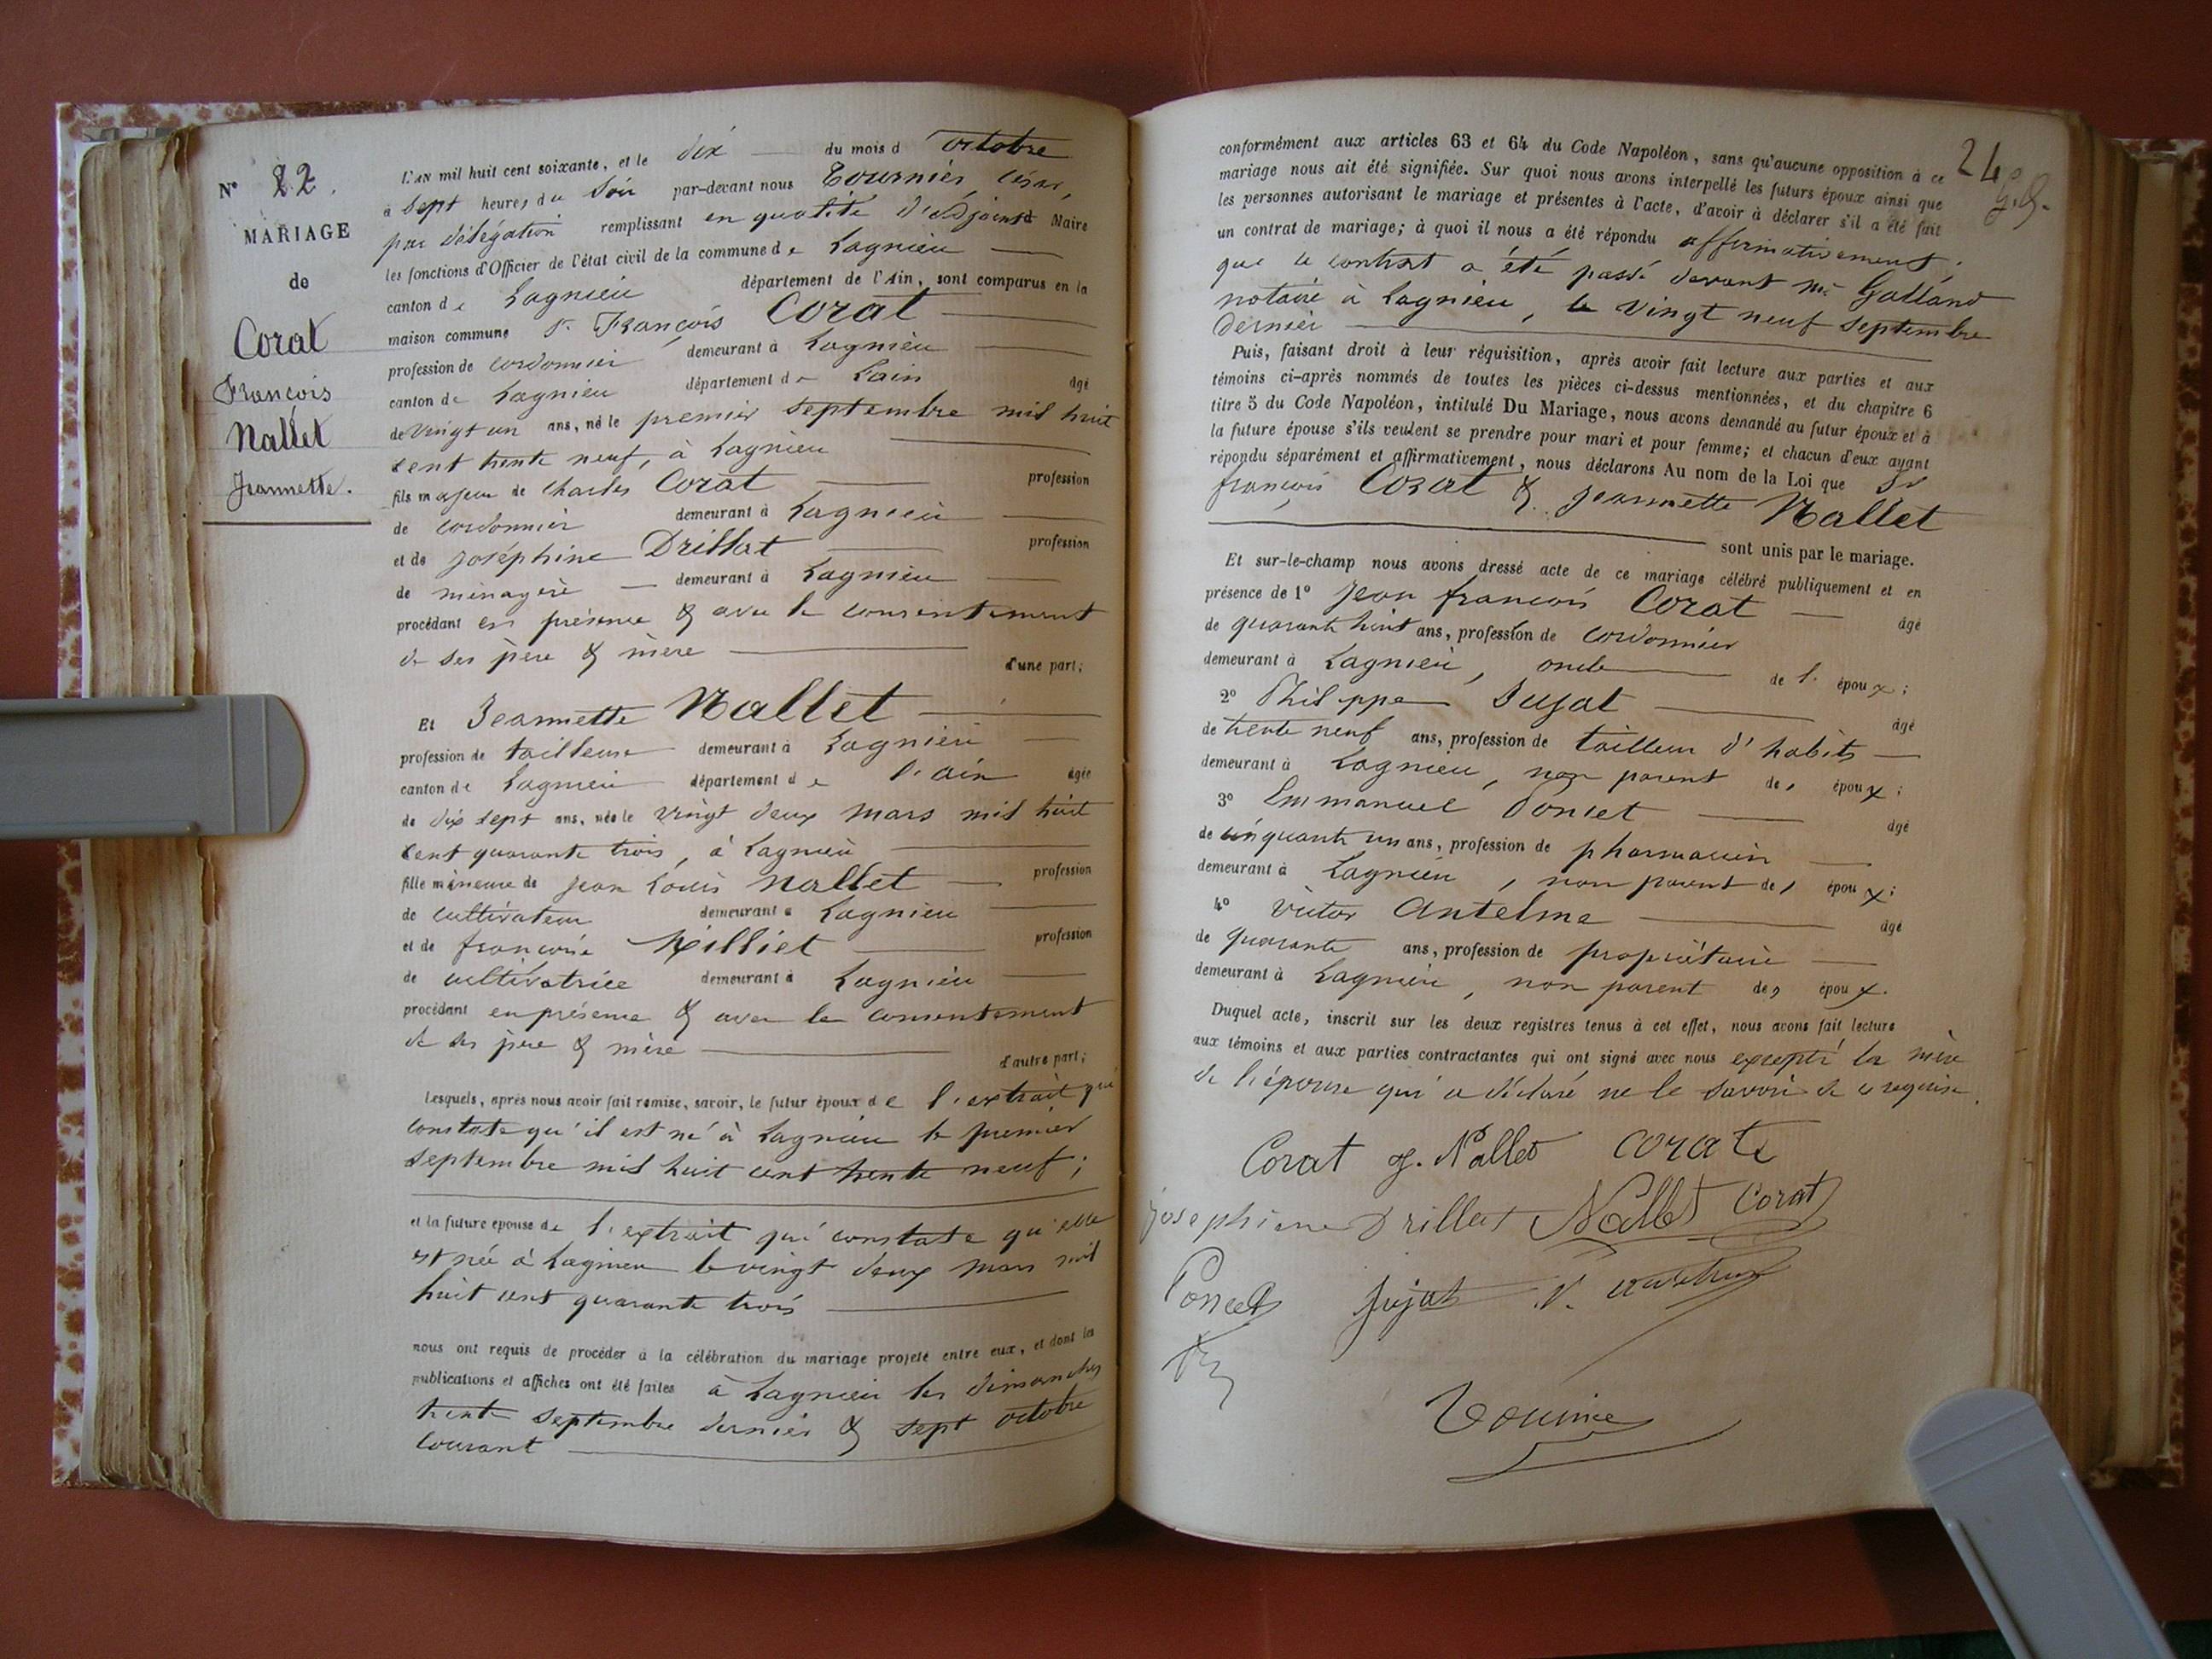 N° 22.
MARIAGE
de
Corat
François
Nallet
Jeannette.
L'AN mil huit cent soixante, et le dix du mois d octobre
à sept heures du soir par-devant nous Tournier, César,
par délégation remplissant en qualité d'adjoint Maire
les fonctions d'Officier de l'état civil de la commune de Lagnieu
canton de Lagnieu département de l'Ain, sont comparus en la
maison commune Sr François Corat
profession de cordonnier demeurant à Lagnieu
canton de Lagnieu département de Lain âgé
de vingt un ans, né le premier septembre mil huit
cent trente neuf, à Lagnieu
fils majeur de Charles Corat profession
de cordonnier demeurant à Lagnieu
et de Joséphine Drillat profession
de ménagère demeurant à Lagnieu
procédant en présence & avec le consentement
de ses père & mère d'une part;
Et Jeannette Nallet
profession de tailleuse demeurant à Lagnieu
canton de Lagnieu département de l'ain âgée
de dix sept ans, née le vingt deux mars mil huit
cent quarante trois, à Lagnieu
fille mineure de Jean Louis Nallet profession
de cultivateur demeurant à Lagnieu
et de françoise Milliet profession
de cultivatrice demeurant à Lagnieu
procédant en présence & avec le consentement
de ses père & mère d'autre part;
Lesquels, après nous avoir fait remise, savoir, le futur époux de l'extrait qui
constate qu'il est né à Lagnieu le premier
septembre mil huit cent trente neuf;
et la future épouse de l'extrait qui constate qu'elle
est née à Lagnieu le vingt deux mars mil
huit cent quarante trois
nous ont requis de procéder à la célébration du mariage projeté entre eux, et dont les
publications et affiches ont été faites à Lagnieu les dimanches
trente septembre dernier & sept octobre
courant
24
conformément aux articles 63 et 64 du Code Napoléon, sans qu'aucune opposition à ce
mariage nous ait été signifiée. Sur quoi nous avons interpellé les futurs époux ainsi que
les personnes autorisant le mariage et présentes à l'acte, d'avoir à déclarer s'il a été fait
un contrat de mariage; à quoi il nous a été répondu affirmativement.
que le contrat a été passé devant Me Galland
notaire à Lagnieu, le vingt neuf septembre
dernier
Puis, faisant droit à leur réquisition, après avoir fait lecture aux parties et aux
témoins ci-après nommés de toutes les pièces ci-dessus mentionnées, et du chapitre 6
titre 5 du Code Napoléon, intitulé Du Mariage, nous avons demandé au futur époux et à
la future épouse s'ils veulent se prendre pour mari et pour femme; et chacun d'eux ayant
répondu séparément et affirmativement, nous déclarons Au nom de la Loi que Sr
françois Corat & Jeannette Nallet
sont unis par le mariage.
Et sur-le-champ nous avons dressé acte de ce mariage célébré publiquement et en
présence de 1° Jean françois Corat âgé
de quarante huit ans, profession de cordonnier
demeurant à Lagnieu, oncle de l' époux;
2° Philippe Sujat âgé
de trente neuf ans, profession de tailleur d'habits
demeurant à Lagnieu, non parent des époux;
3° Emmanuel Poncet âgé
de cinquante un ans, profession de pharmacien
demeurant à Lagnieu, non parent des époux;
4° Victor Antelme âgé
de quarante ans, profession de propriétaire
demeurant à Lagnieu, non parent des époux.
Duquel acte, inscrit sur les deux registres tenus à cet effet, nous avons fait lecture
aux témoins et aux parties contractantes qui ont signé avec nous excepté la mère
de l'épouse qui a déclaré ne le savoir de ce requise.
Corat J. Nallet Corat
Josephine Drillat Nallet Corat
Poncet Sujat V. antelme
Tournier